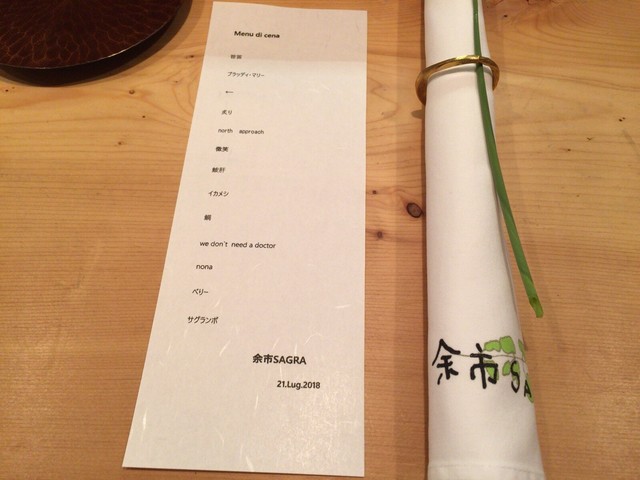 Menu di cena
ブラッディ・マリー
炙り
north approach
微笑
鮟肝
イカメシ
鯛
we don't need a doctor
nona
ベリー
サグランボ
余市SAGRA
21.Lug.2018
余市SA